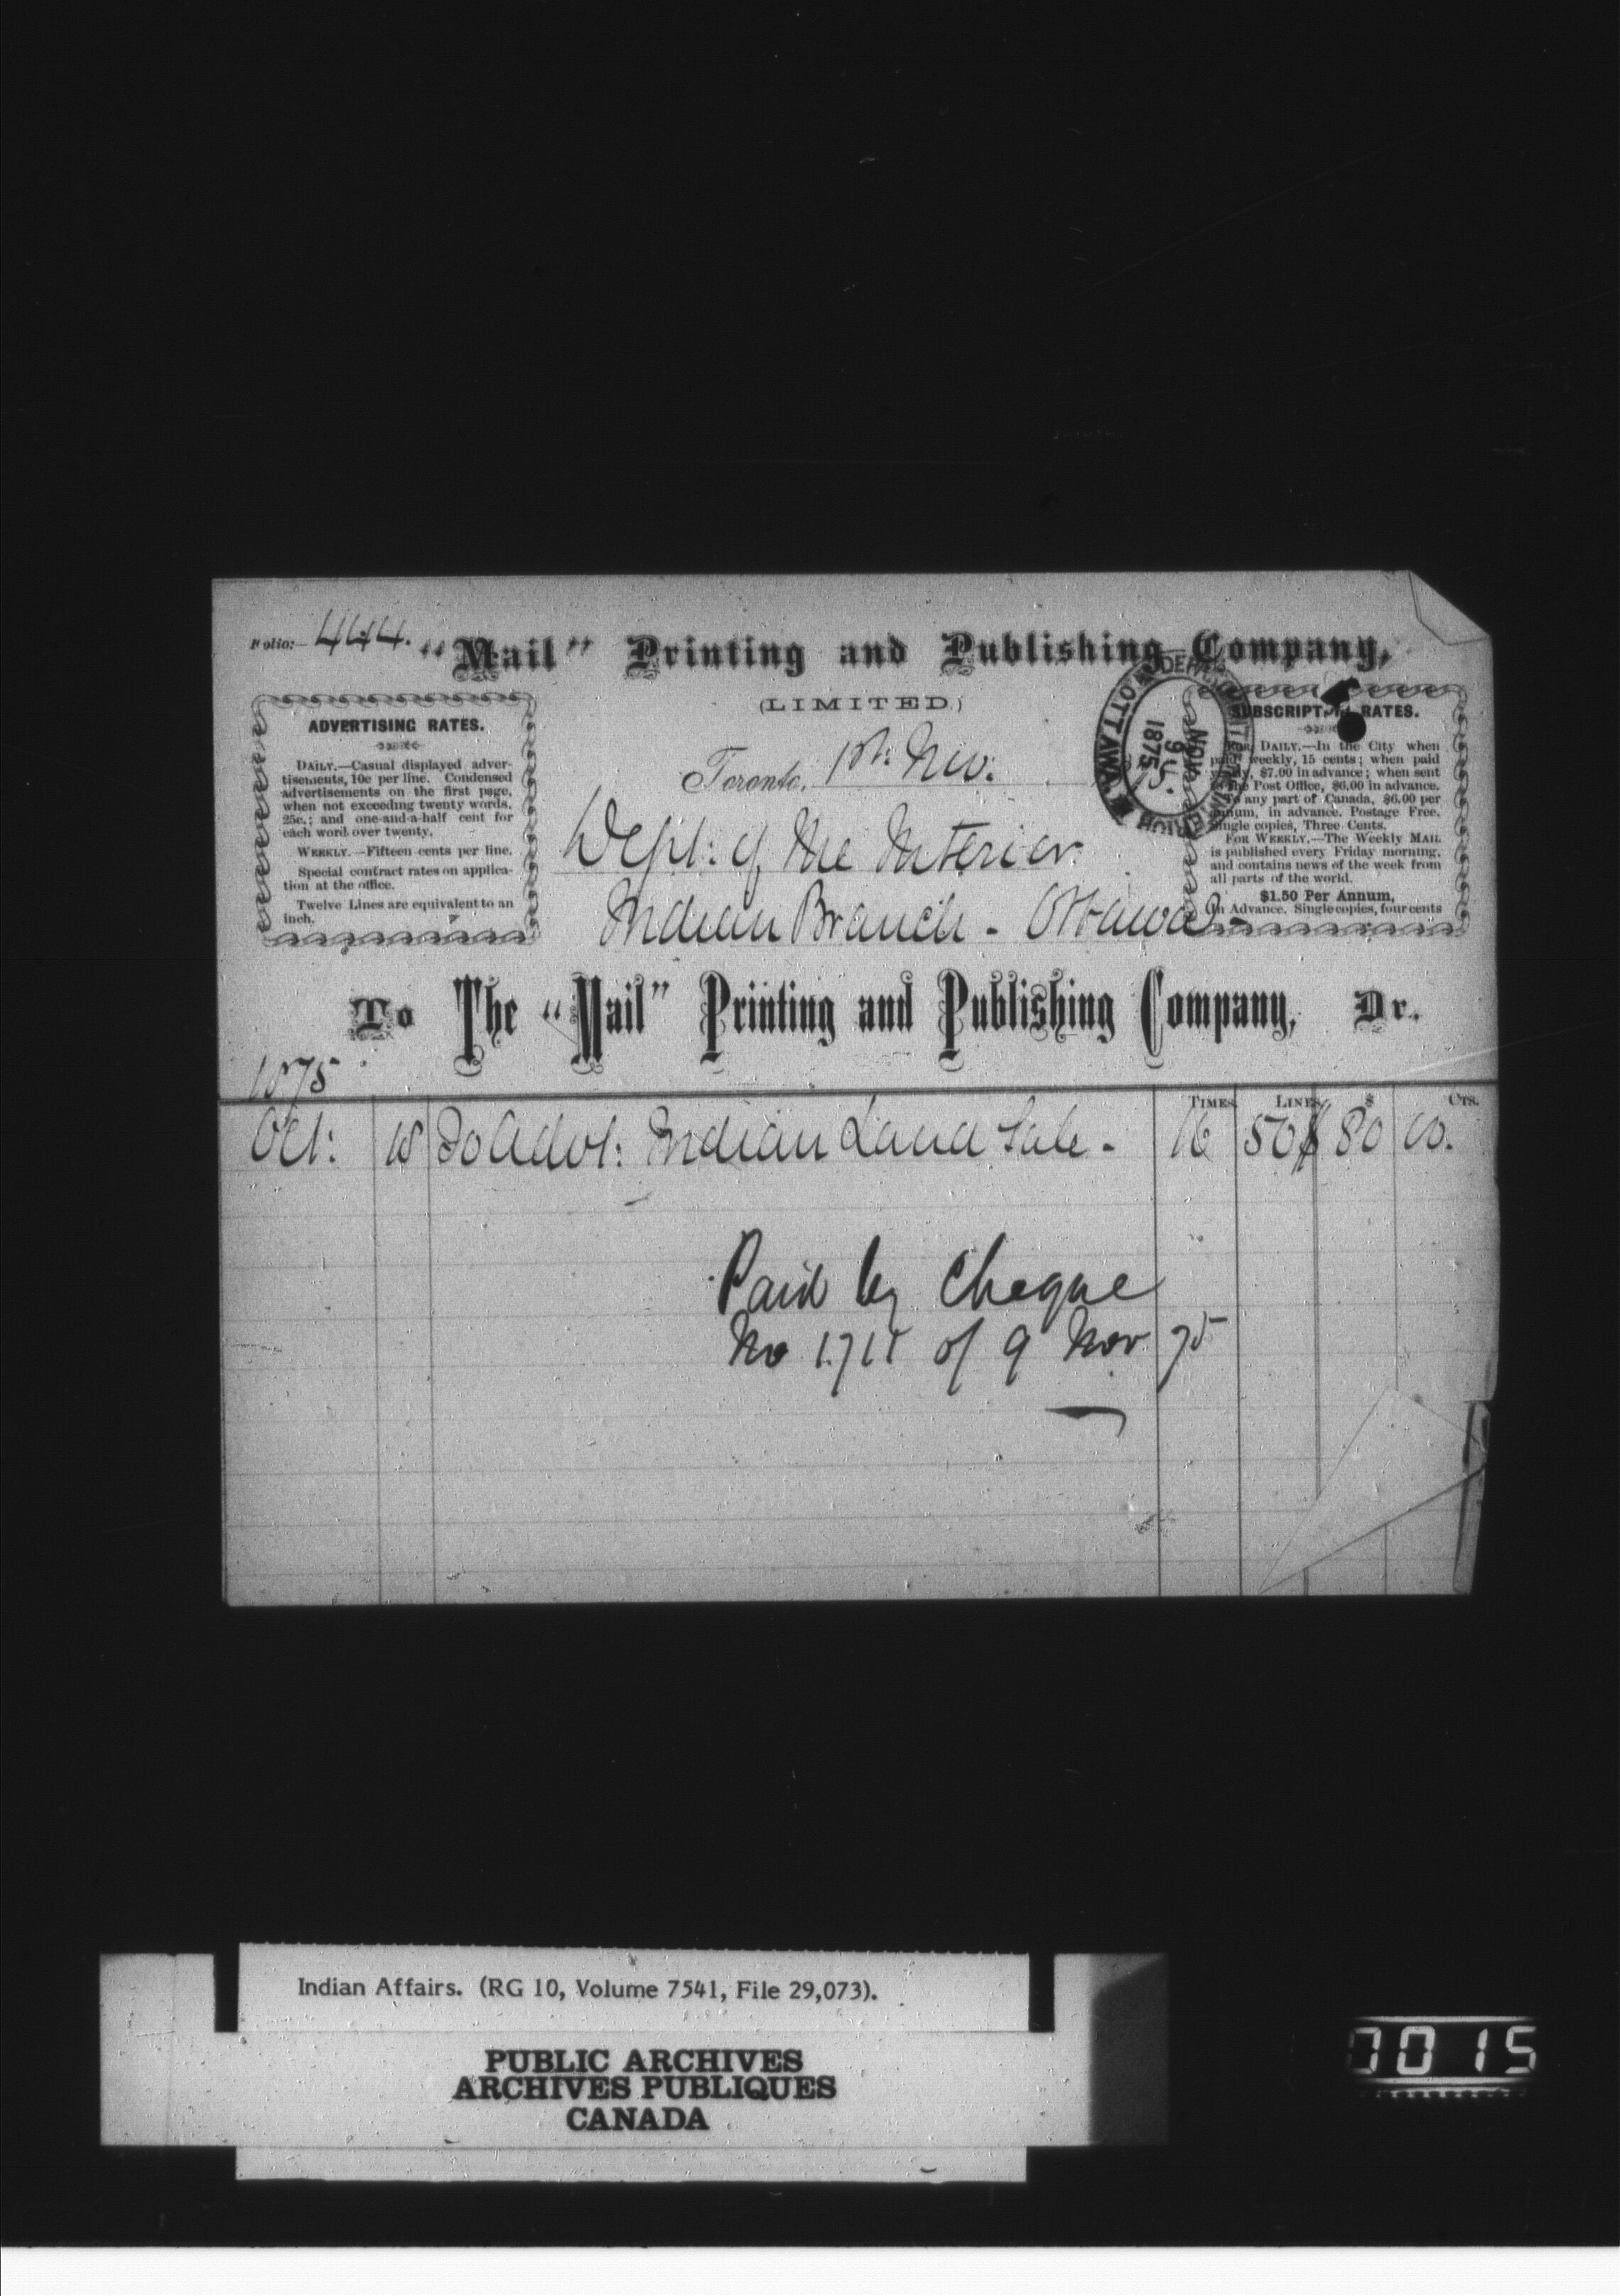 Folio:— 444.
"Mail" Printing and Publishing Company,
(LIMITED.)
ADVERTISING RATES.
DAILY.—Casual displayed adver-
tisements, 10c per line. Condensed
advertisements on the first page,
when not exceeding twenty words,
25c.; and one-and-a-half cent for
each word over twenty.
WEEKLY.—Fifteen cents per line.
Special contract rates on applica-
tion at the office.
Twelve Lines are equivalent to an
inch.
Toronto, 1st. Nov.
Dept: of the Interior.
Indian Branch - Ottawa -
OTTAWA
NOV
9
1875
SUBSCRIPTION RATES.
FOR DAILY.—In the City when
paid weekly, 15 cents; when paid
yearly, $7.00 in advance; when sent
to the Post Office, $6.00 in advance.
To any part of Canada, $6.00 per
annum, in advance. Postage Free.
Single copies, Three Cents.
FOR WEEKLY.—The Weekly MAIL
is published every Friday morning,
and contains news of the week from
all parts of the world.
$1.50 Per Annum,
In Advance. Single copies, four cents
To The "Mail" Printing and Publishing Company, Dr.
1875
TIMES LINES $ CTS.
Oct: 18 To Advt: Indian Land Sale - 16 50 $ 80 00.
Paid by Cheque
No 1715 of 9 Nov 75
Indian Affairs. (RG 10, Volume 7541, File 29,073).
PUBLIC ARCHIVES
ARCHIVES PUBLIQUES
CANADA
0015